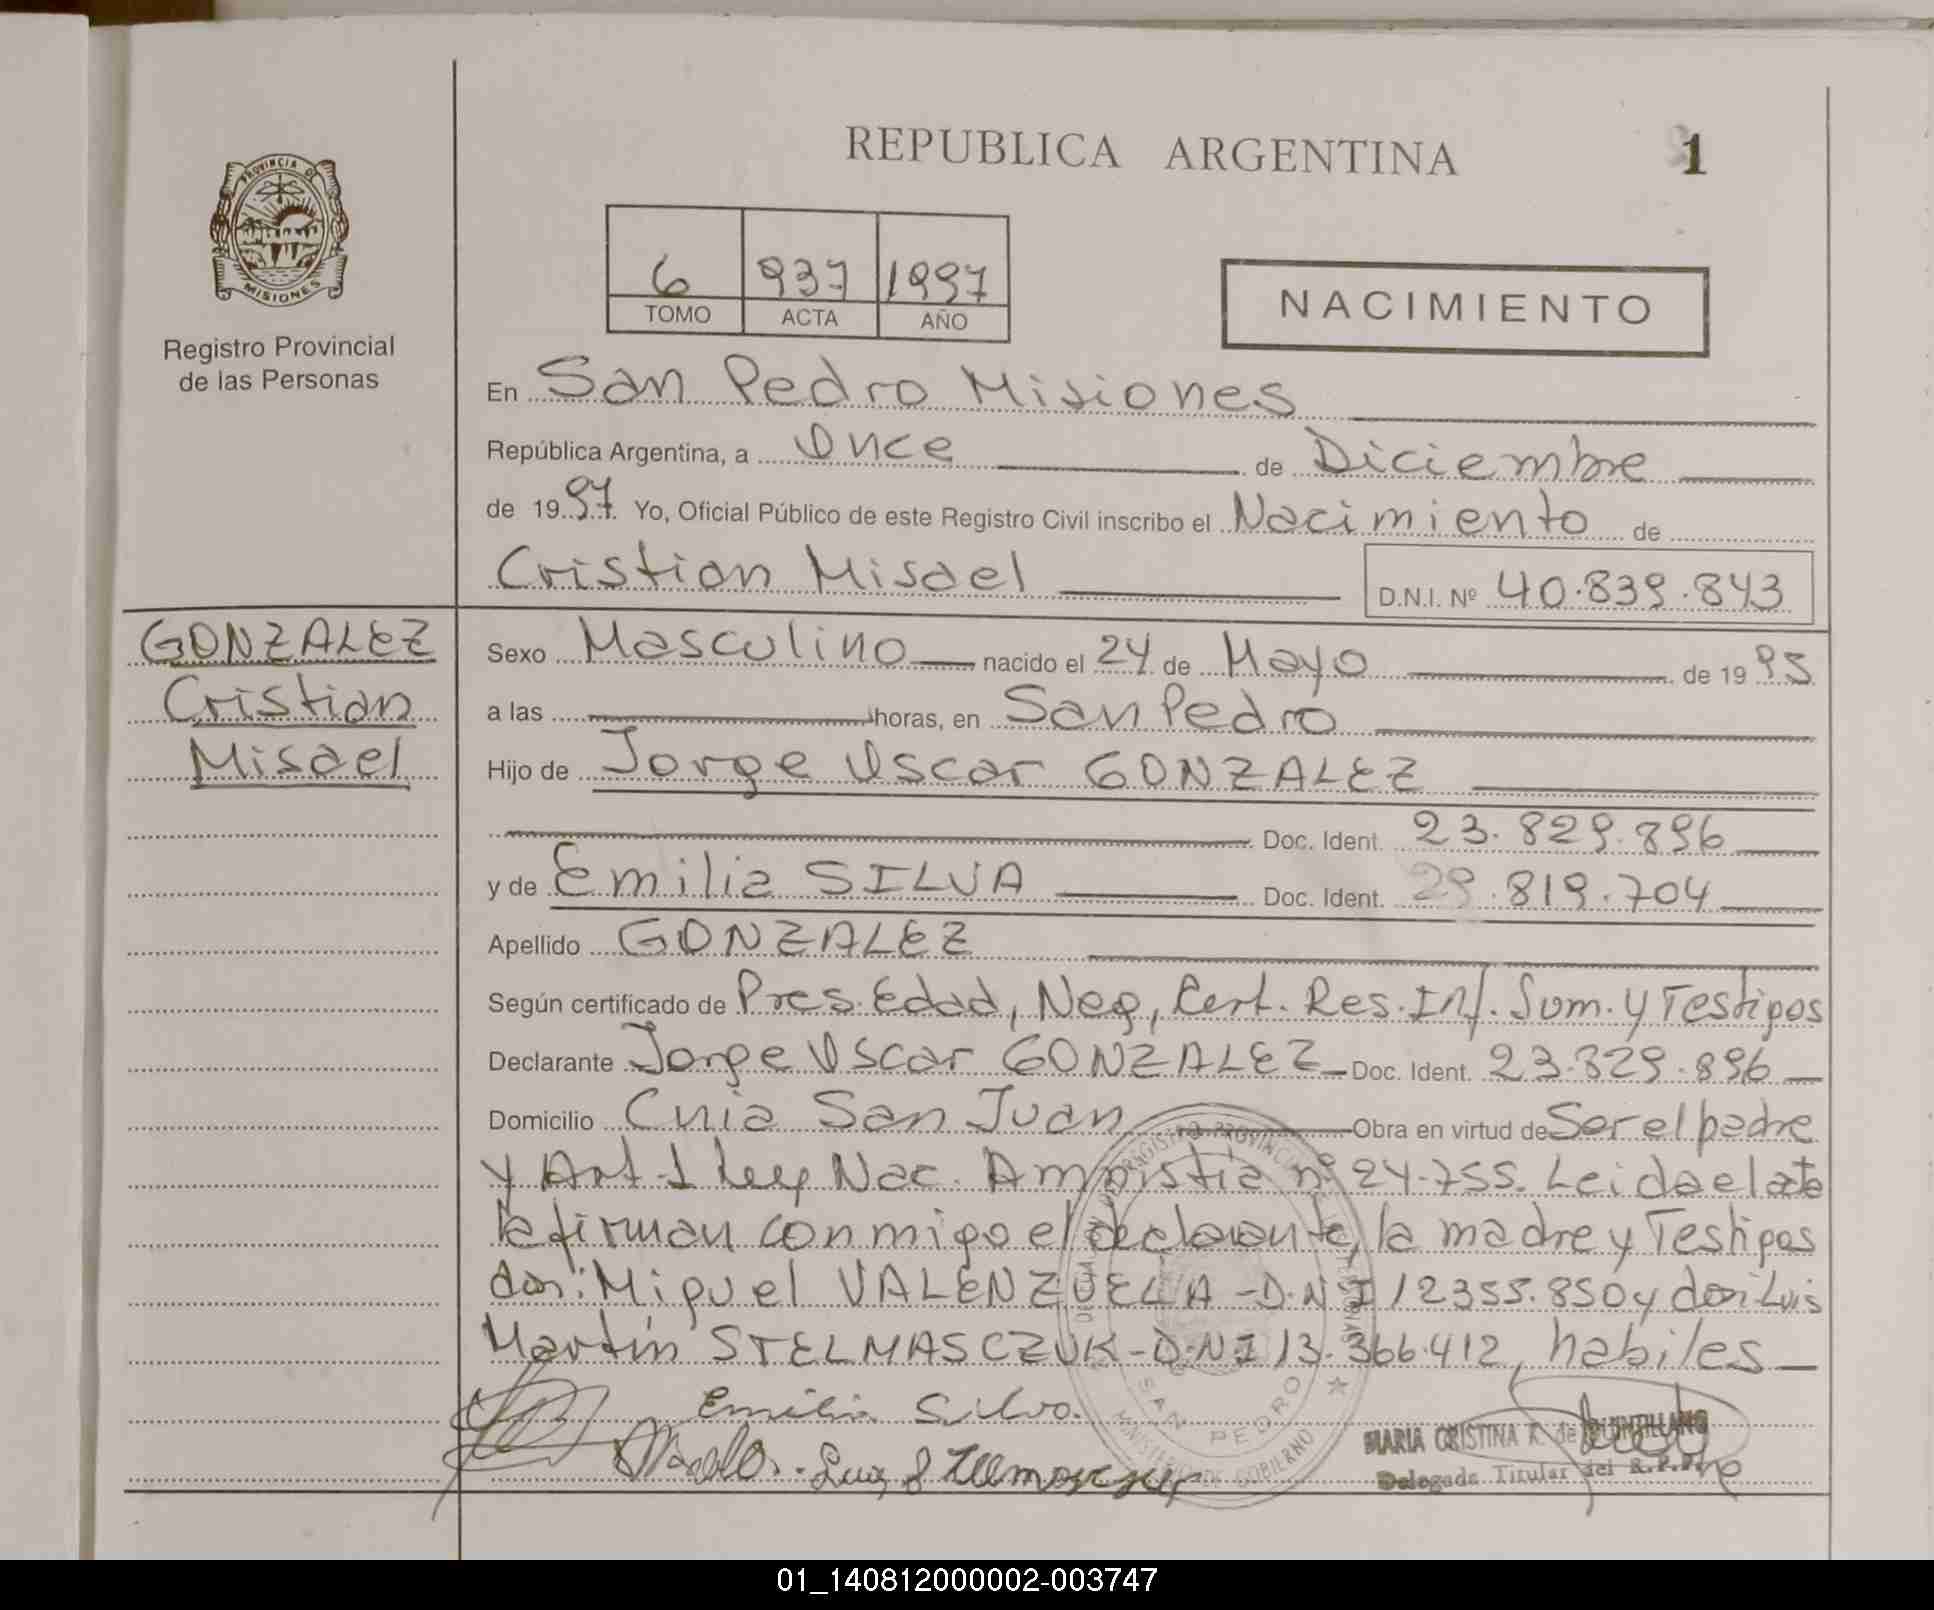 REPUBLICA ARGENTINA
1
PROVINCIA DE
MISIONES
Registro Provincial
de las Personas
6 937 1997
TOMO ACTA AÑO
NACIMIENTO
En San Pedro Misiones
República Argentina, a Once de Diciembre
de 1997 Yo, Oficial Público de este Registro Civil inscribo el Nacimiento de
Cristian Misael D.N.I. Nº 40.839.843
GONZALEZ
Cristian
Misael
Sexo Masculino nacido el 24 de Mayo de 1995
a las horas, en San Pedro
Hijo de Jorge Oscar GONZALEZ
Doc. Ident. 23.829.896
y de Emilia SILVA Doc. Ident. 29.819.704
Apellido GONZALEZ
Según certificado de Pres. Edad, Neg, Cert. Res. Inf. Sum. y Testigos
Declarante Jorge Oscar GONZALEZ Doc. Ident. 23.829.896
Domicilio Cnia San Juan Obra en virtud de Ser el padre
y Art. 1 Ley Nac. Amnistia nº 24.755. Leida el acta
la firman conmigo el declarante, la madre y Testigos
don: Miguel VALENZUELA - D.N.I 12355.850 y don Luis
Martín STELMASCZUK - D.N.I 13.366.412, habiles
Emilia Silva.
MARIA CRISTINA R. de QUINTILLANO
Delegada Titular del R.P.P.
SAN PEDRO
MINISTERIO DE GOBIERNO
01_140812000002-003747